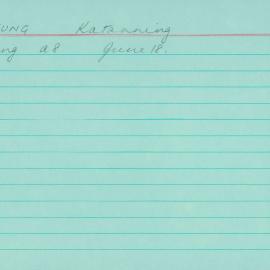 UNG Katanning
ng a8 June 18.